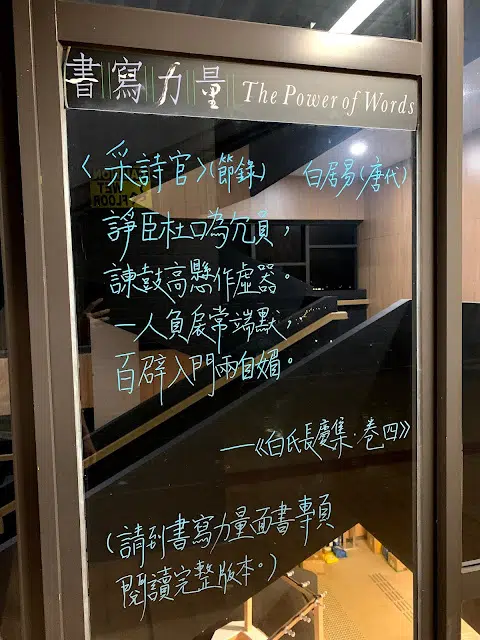 書寫力量 The Power of Words
〈采詩官〉(節錄) 白居易(唐代)
諍臣杜口為冗員，
諫鼓高懸作虛器。
一人負扆常端默，
百辟入門兩自媚。
—《白氏長慶集·卷四》
(請到書寫力量面書專頁
閱讀完整版本。)
WET
FLOOR